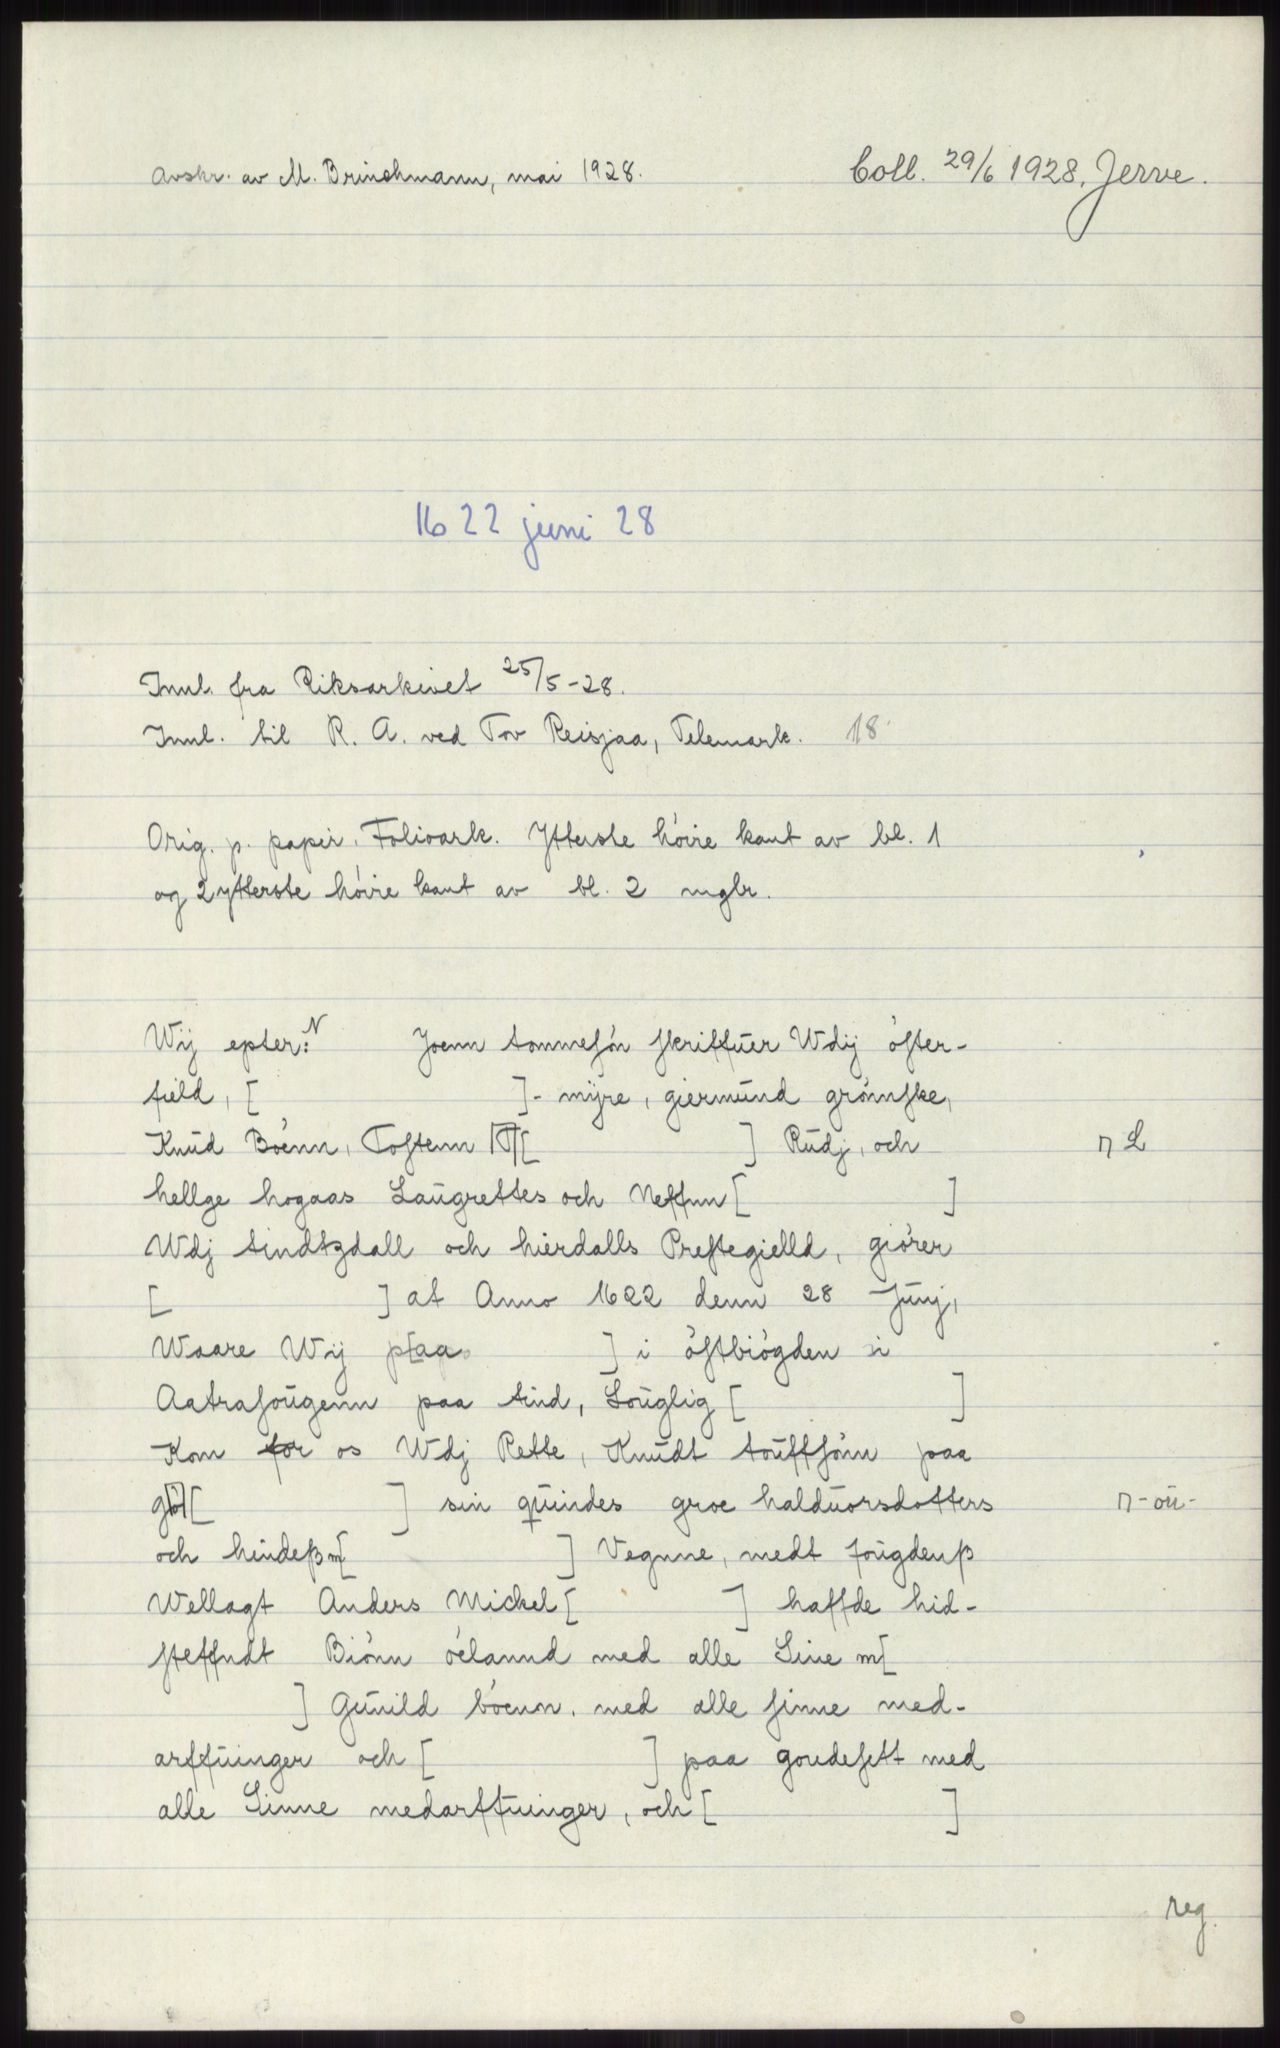 avskr. av M. Brinchmann, mai 1928.
Coll. 29/6 1928, Jerve.
1622 juni 28
Innl. fra Riksarkivet 25/5-28.
Innl. til R. A. ved Tov Reisjaa, Telemark. 18
Orig. p. papir. Folioark. Ytterste høire kant av bl. 1
og 2 ytterste høire kant av bl. 2 mglr.
Wij epter:N Joenn tommesón skriffuer Wdij óster-
field, [ ]- mÿre, giermúnd grómske,
Knúd Bóenn, Tostenn [ ] Rúdj, och
n L
hellge hogaas Laúgrettes och Neffnn [ ]
Wdj tindtzdall och hierdalls Prestegielld, giórer
[ ] at Anno 1622 denn 28 Júnj,
Waare Wij p[aa ] i óstbiógden i
Aatrasoúgenn paa tind, Loúglig [ ]
Kom for os Wdj Rette, Knúdt toúffsónn paa
gó[ ] sin qúindes groe haldúorsdotters
n-oú-
och hindeß m[ ] Vegnne, medt foúgdenß
Wellagt Anders Mickel [ ] haffde hid-
steffndt Biónn óelannd med alle Sine m[
] Gúnild bóenn, med alle sinne med-
arffúinger och [ ] paa goudesett med
alle Sinne medarffúinger, och [ ]
reg.